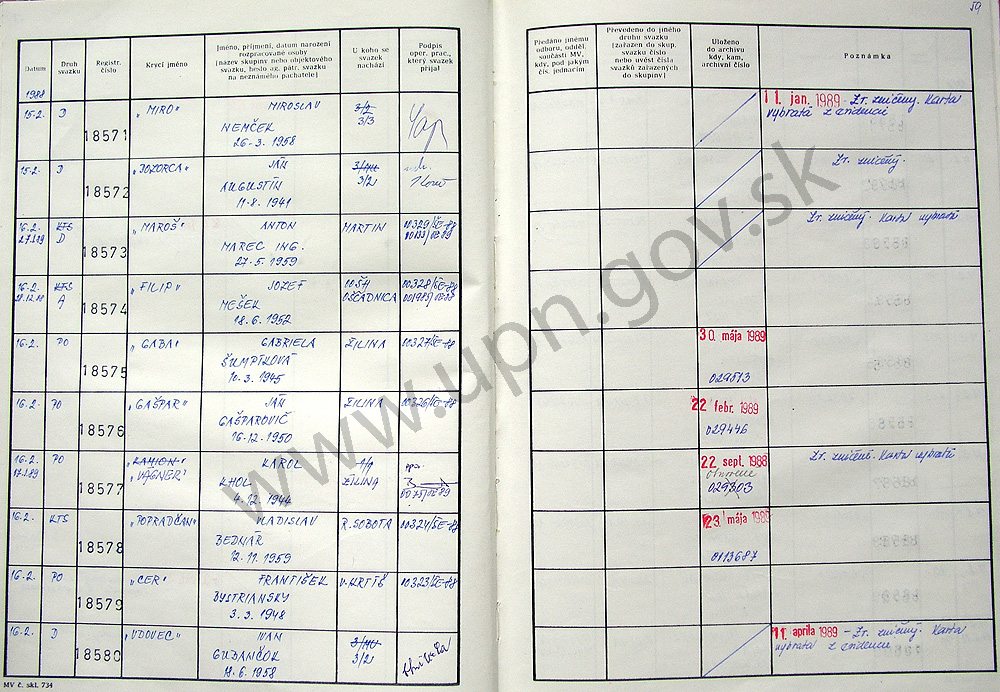 59
Datum
Druh svazku
Registr. číslo
Krycí jméno
Jméno, příjmení, datum narození
rozpracované osoby
(název skupiny nebo objektového
svazku, heslo ag. pátr. svazku
na neznámého pachatele)
U koho se
svazek
nachází
Podpis
oper. prac.,
který svazek
přijal
Předáno jinému
odboru, odděl.
součásti MV,
kdy, pod jakým
čís. jednacím
Převedeno do jiného
druhu svazku
(zařazen do skup.
svazku číslo
nebo uvést čísla
svazků zařazených
do skupiny)
Uloženo
do archivu
kdy, kam,
archivní číslo
Poznámka
1988
15.2. D 18571 „MIRO" MIROSLAV
NEMČEK
26.3. 1958
3/3
11. jan. 1989 - Zv. zničený. Karta
vybratá z evidencie
15.2. D 18572 „DOZORCA" JÁN
AUGUSTÍN
11.8. 1941
3/2
Zv. zničený.
16.2. KTS 18573 „MAROŠ" ANTON
D
MAREC ING.
27.5. 1959
MARTIN
00329/ČE-88
Zv. zničený. Karta vybratá
16.2. KTS 18574 „FILIP" JOZEF
A
MEŠEK
18.6. 1952
OŠČADNICA
00328/ČE-88
16.2. PO 18575 „GABA" GABRIELA
ŠUMPÍKOVÁ
10.3. 1945
ŽILINA
00327/ČE-88
30. mája 1989
029513
16.2. PO 18576 „GAŠPAR" JÁN
GAŠPAROVIČ
16.12. 1950
ŽILINA
00326/ČE-88
22 febr. 1989
029446
16.2. PO 18577 „KAMION"
„VÁGNER" KAROL
KHOL
4.12. 1944
1/1
ŽILINA
22. sept. 1988
029303
Zv. zničené. Karta vybratá
16.2. KTS 18578 „POPRADČAN" VLADISLAV
BEDNÁR
12.11. 1959
R. SOBOTA
00324/ČE-88
23. mája 1989
0113687
16.2. PO 18579 „CER" FRANTIŠEK
BYSTRIANSKY
3.3. 1948
V. KRTÍŠ
00323/ČE-88
16.2. D 18580 „VDOVEC" IVAN
GUDANČOK
18.6. 1958
3/2
11. apríla 1989 - Zv. zničený. Karta
vybratá z evidencie
MV č. skl. 734
www.upn.gov.sk